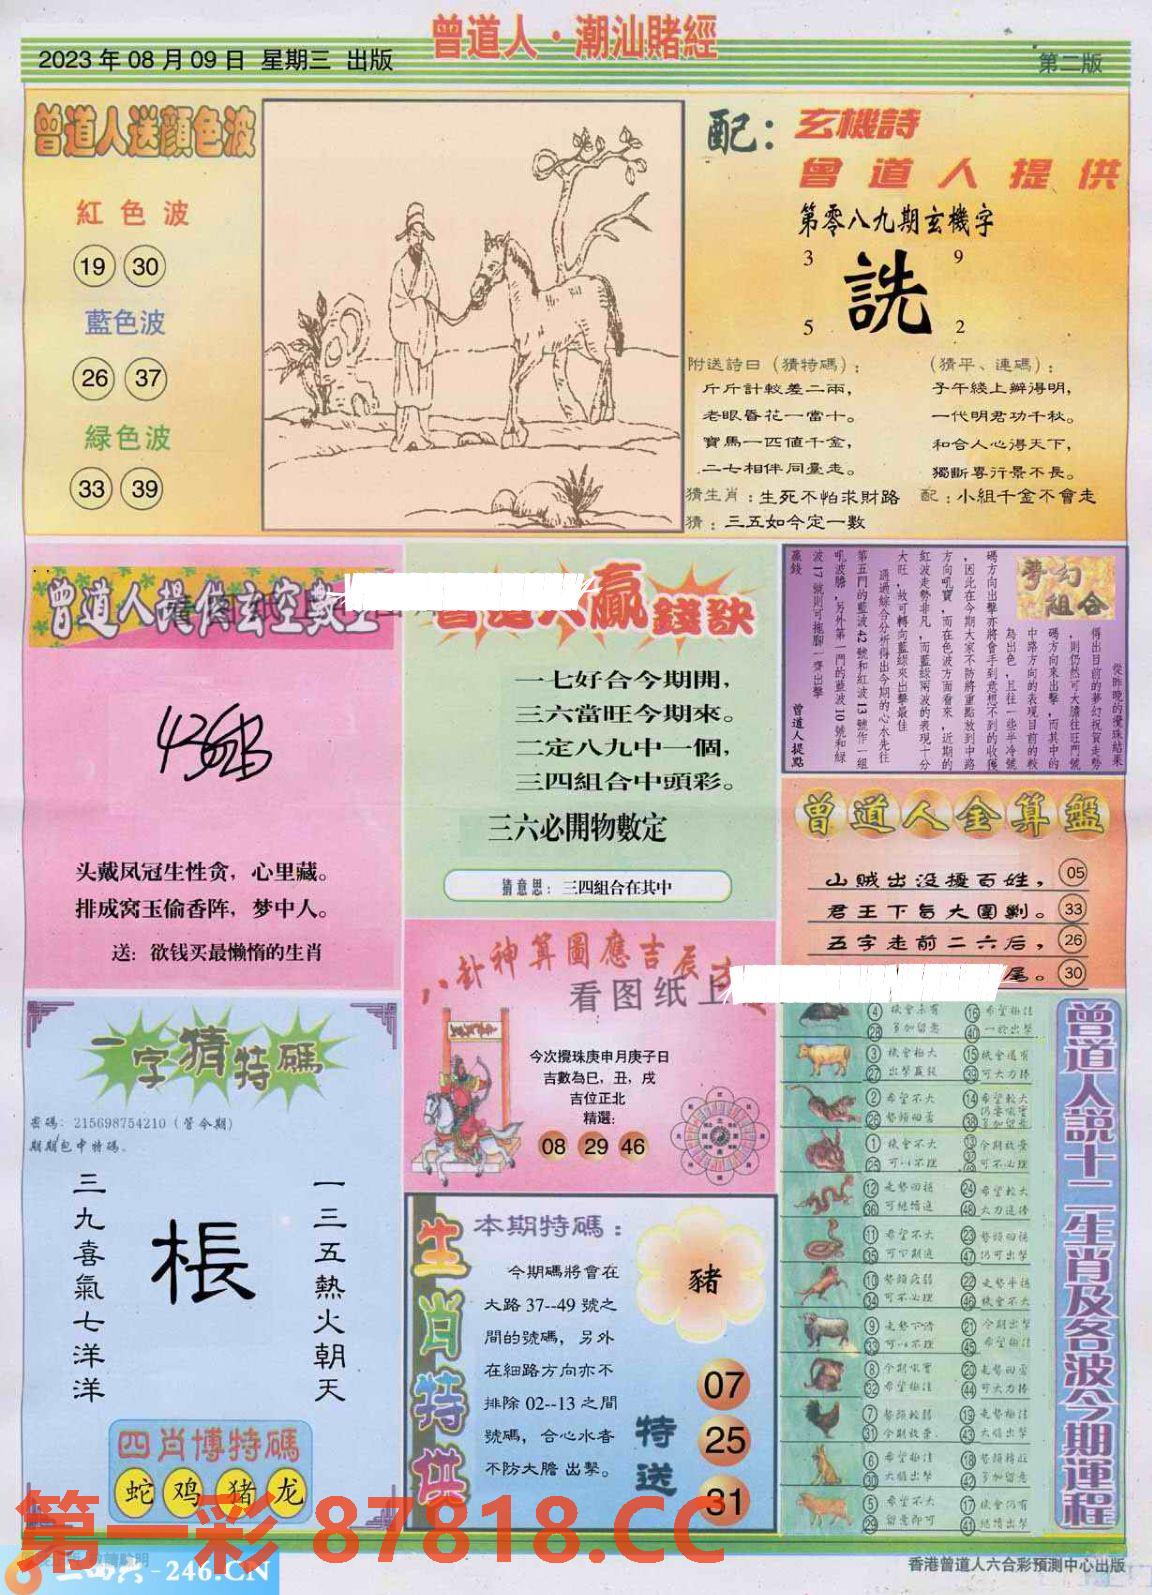 曾道人·潮汕賭經
2023年08月09日 星期三 出版
第二版
曾道人送顏色波
紅色波
19 30
藍色波
26 37
緑色波
33 39
配：
玄機詩
曾道人提供
第零八九期玄機字
3 9
詵
5 2
附送詩曰（猜特碼）：
斤斤計較差二兩，
老眼昏花一當十。
寶馬一匹值千金，
二七相伴同臺走。
（猜平、連碼）：
子午綫上辦得明，
一代明君功千秋。
和合人心得天下，
獨斷專行景不長。
猜生肖：生死不怕求財路 配：小組千金不會走
猜：三五如今定一數
曾道人提供玄空數
头戴凤冠生性贪，心里藏。
排成窝玉偷香阵，梦中人。
送：欲钱买最懒惰的生肖
贏錢訣
一七好合今期開，
三六當旺今期來。
二定八九中一個，
三四組合中頭彩。
三六必開物數定
猜意思：三四組合在其中
夢幻組合
從昨晚的攪珠結果
得出目前的夢幻祝賀走勢
，則仍然可大膽往旺門號
碼方向來出擊，而其中的
中路方向的表現目前的較
為出色，且往一些半冷號
碼方向出擊亦將會手到意想不到的收獲
，因此在今期大家不防將重點放到中路
方向吼寶，而在色波方面看來，近期的
紅波走勢非凡，而藍綠兩波的表現十分
大旺，故可轉向藍綠來出擊最佳
通過綜合分析得出今期的心水先往
第五門的藍波42號和紅波13號作一組
吼波膽，另外第一門的藍波10號和綠
波17號則可拖腳一齊出擊
贏錢
曾道人提點
曾道人金算盤
山賊出没擾百姓， 05
君王下旨大圍剿。 33
五字走前二六后， 26
尾。 30
八卦神算圖應吉辰
看图纸上
今次攪珠庚申月庚子日
吉數為巳，丑，戌
吉位正北
精選：
08 29 46
一字猜特碼
密碼：215698754210（管今期）
期期包中特碼。
一三五熱火朝天
棖
三九喜氣七洋洋
四肖博特碼
蛇 鸡 猪 龙
生肖特供
本期特碼：
今期碼將會在
大路37--49號之
間的號碼，另外
在細路方向亦不
排除02--13之間
號碼，合心水者
不防大膽出擊。
豬
特送
07
25
31
曾道人說十二生肖及各波今期運程
4 機會未有 16 希望極佳
28 多加留意 40 一於出擊
3 機會極大 15 機會還有
27 出擊贏錢 39 可大力捧
2 希望不大 14 希望較大
26 勢頭回落 38 多加留意
1 機會不大 13 今期放棄
25 可以不理 可不必理
12 走勢回穩 24 希望較大
36 可繼續追 48 大力追捧
11 希望不大 23 勢頭回穩
35 可下期追 47 仍可出擊
10 勢頭疲弱 22 走勢平穩
34 可不必理 46 機會不大
9 走勢下滑 21 今期出擊
33 可以不理 45 希望極佳
8 今期吼實 20 走勢回落
32 希望極佳 44 可大力捧
7 勢頭較弱 19 走勢極佳
31 今期放棄 43 大膽出擊
6 希望極佳 18 勢頭轉旺
30 大膽出擊 42 多加留意
5 希望不大 17 機會仍有
29 留意即可 41 繼續出擊
第一彩 87818.CC
246.CN
香港曾道人六合彩預測中心出版